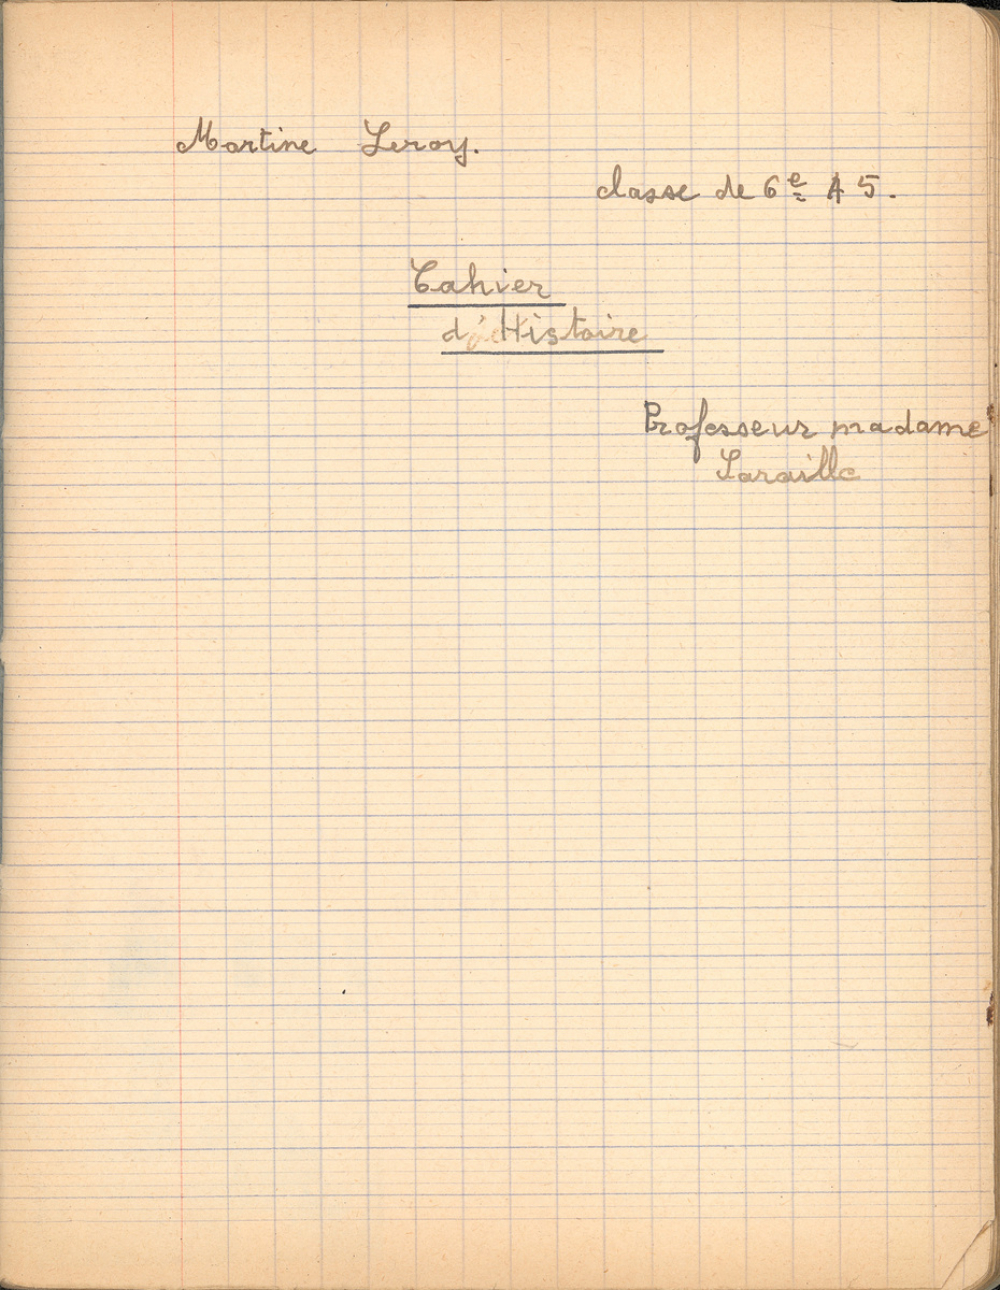 Martine Leroy.
classe de 6e A 5.
Cahier
d'Histoire
Professeur madame
Laraille